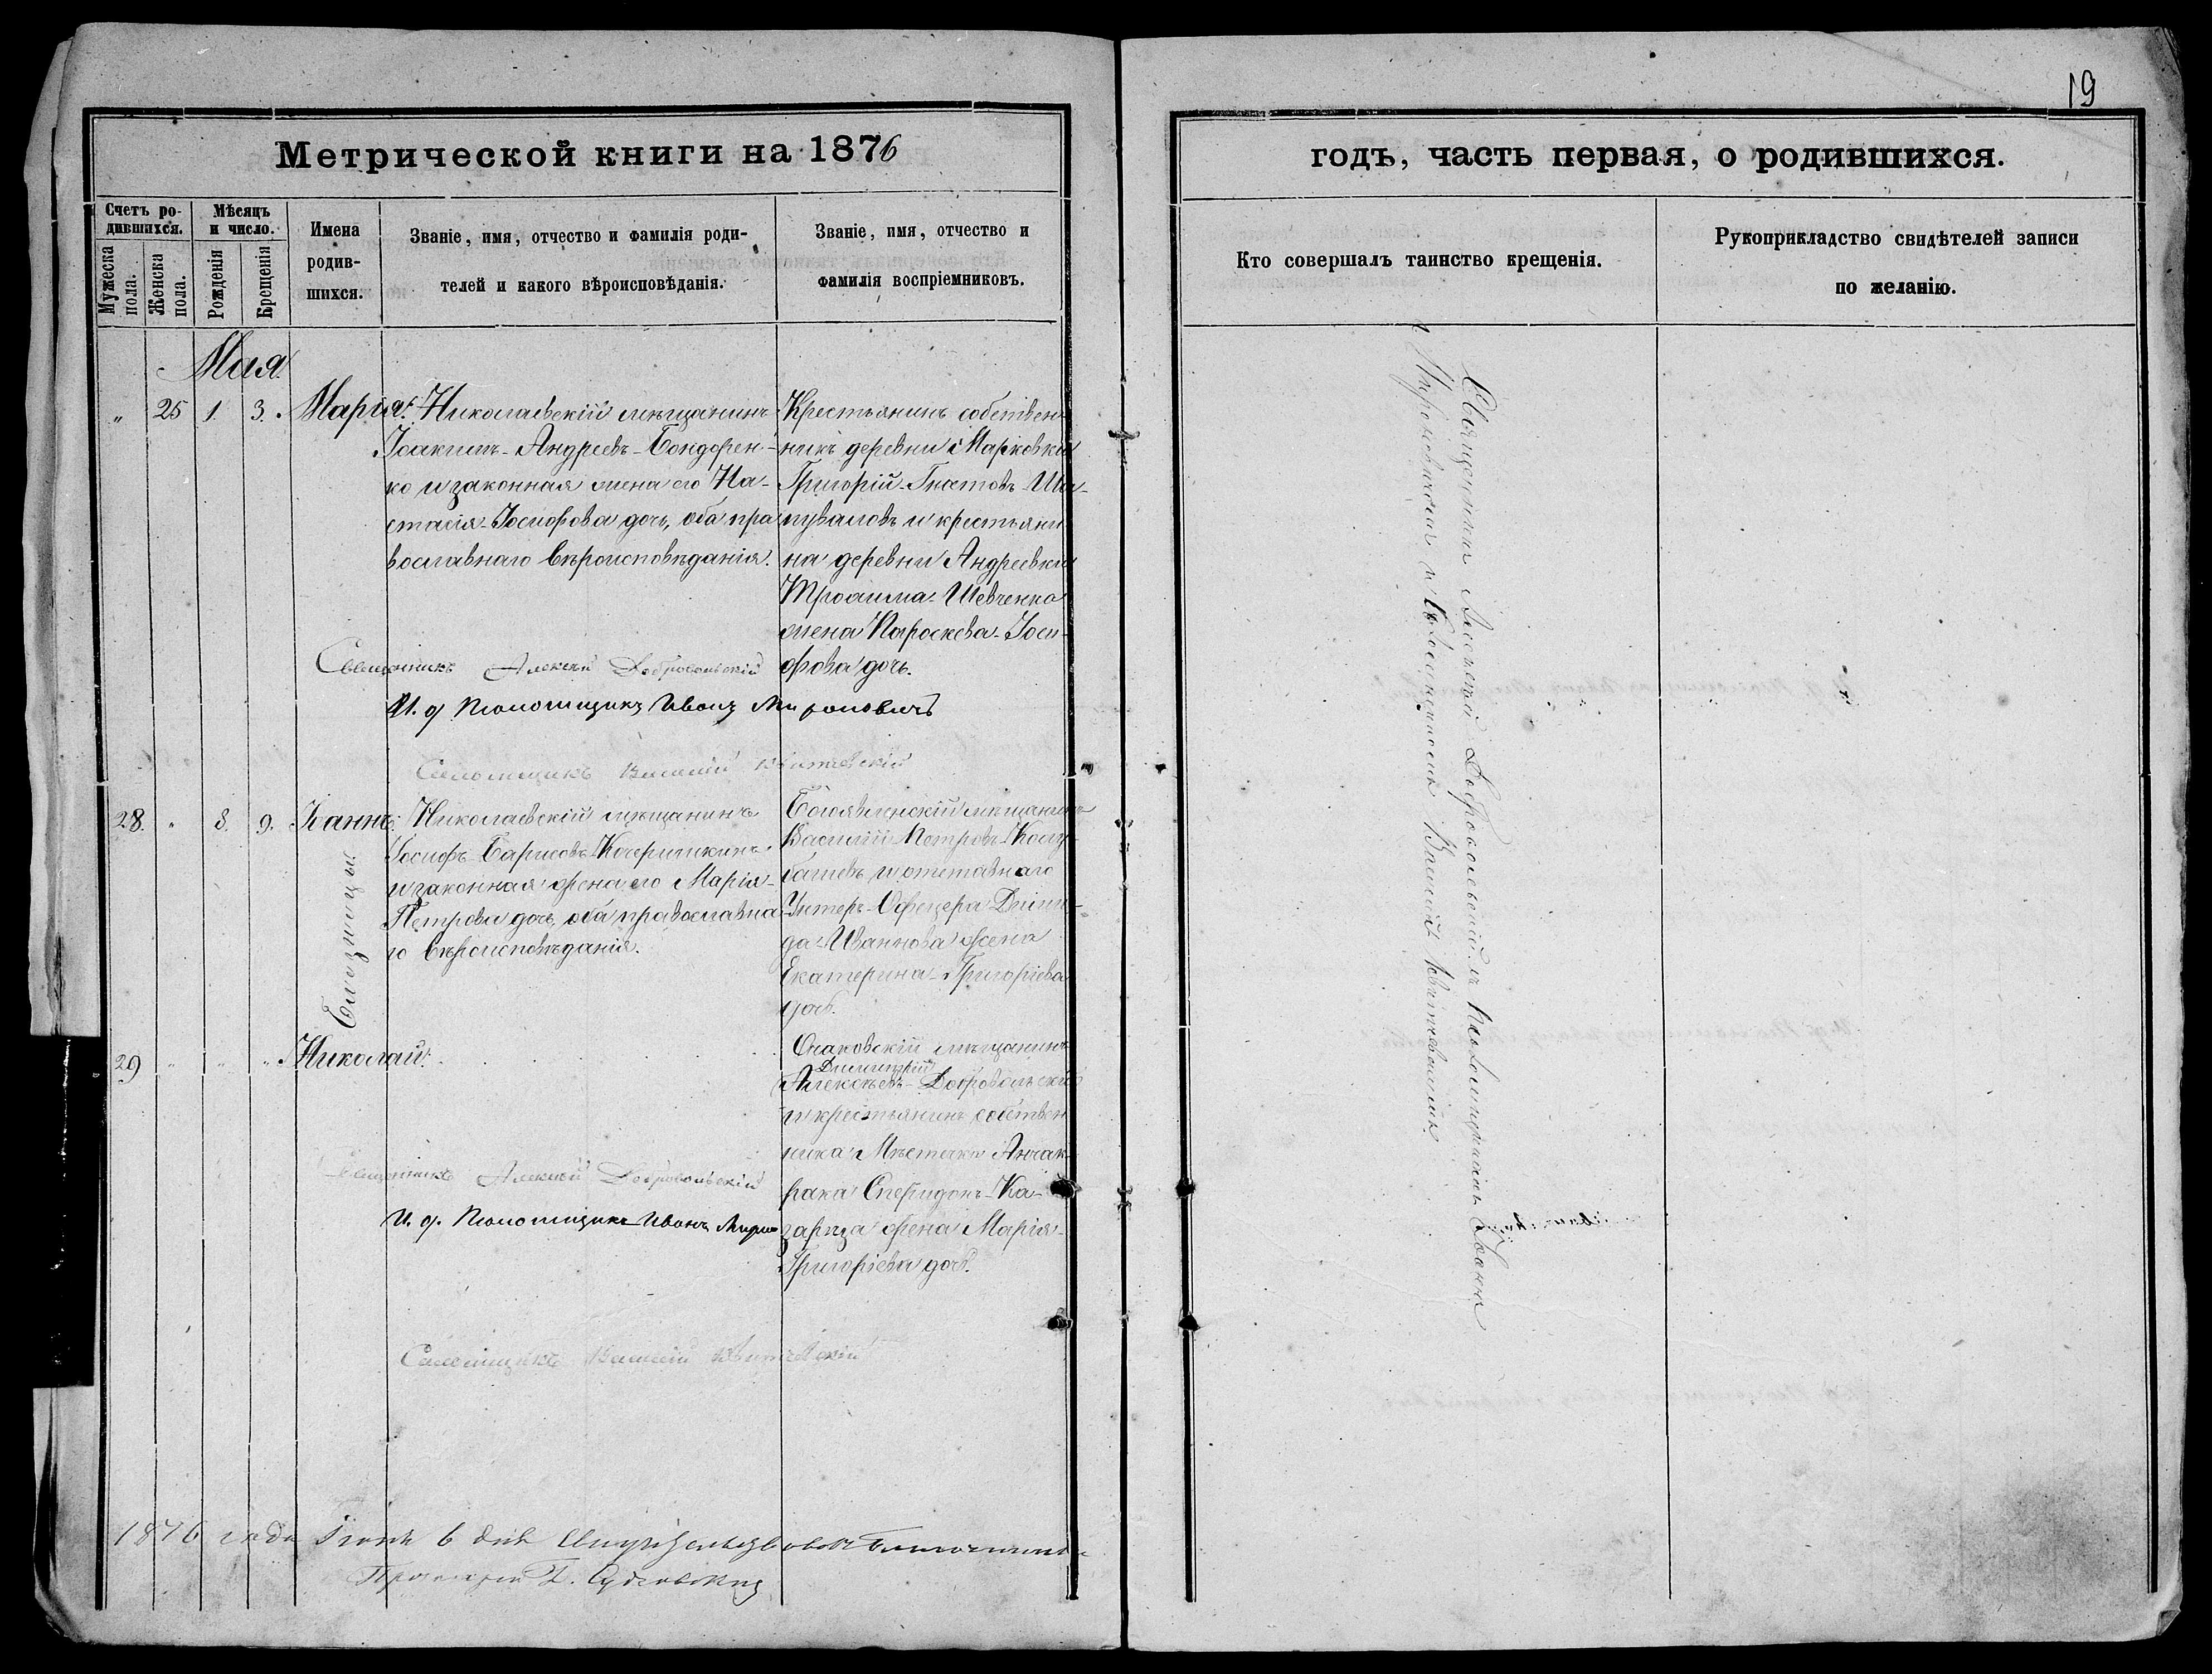 19
Метрической книги на 1876
годъ, часть первая, о родившихся.
Счетъ ро-
дившихся.
Мѣсяцъ
и число.
Мужеска пола.
Женска пола.
Рожденія
Крещенія
Имена
родив-
шихся.
Званіе, имя, отчество и фамилія роди-
телей и какого вѣроисповѣданія.
Званіе, имя, отчество и
фамилія воспріемниковъ.
Кто совершалъ таинство крещенія.
Рукоприкладство свидѣтелей записи
по желанію.
Мая
" 25 1. 3. Марія.
Николаевскій мѣщанинъ
Іоакимъ Андреевъ Бондорен-
ко и законная жена его На-
стасія Іосифова дочь, оба пра
вославнаго вѣроисповѣданія.
Крестьянинъ собствен-
никъ деревни Марковки
Григорій Гнатовъ Ша-
пуваловъ и крестьяни
на деревни Андреевки
Трофима Шевченка
жена Параскева Іоси-
фова дочь.
Священникъ Алексѣй Добровольскій
И. д. Псаломщика Иванъ Мироновичъ
Псаломщикъ Василій Квитневскій
28. " 8. 9. Іоаннъ.
близнецы
Николаевскій мѣщанинъ
Іосифъ Борисовъ Кочеришкинъ
и законная жена его Марія
Петрова дочь, оба православна
го вѣроисповѣданія.
Богоявленскій мѣщанинъ
Василій Петровъ
и отставнаго
Унтеръ-Офицера
Иванова жена
Екатерина Григоріева
дочь.
29 " " " Николай.
Очаковскій мѣщанинъ
Димитрій
Алексѣевъ Добровольскій
и крестьянина собствен
ника Мѣстечка Анчак-
рака Спиридона Ка-
жена Марія
Григоріева дочь.
Священникъ Алексѣй Добровольскій
И. д. Псаломщика Иванъ Миро
Псаломщикъ Василій Квитневскій
Священникъ Алексѣй Добровольскій съ Псаломщикомъ Іоанномъ
Мироновичемъ и Василій Квитневскимъ
1876 года Іюня 6 дня Свидѣтельствовалъ Благочинный
Протоіерей